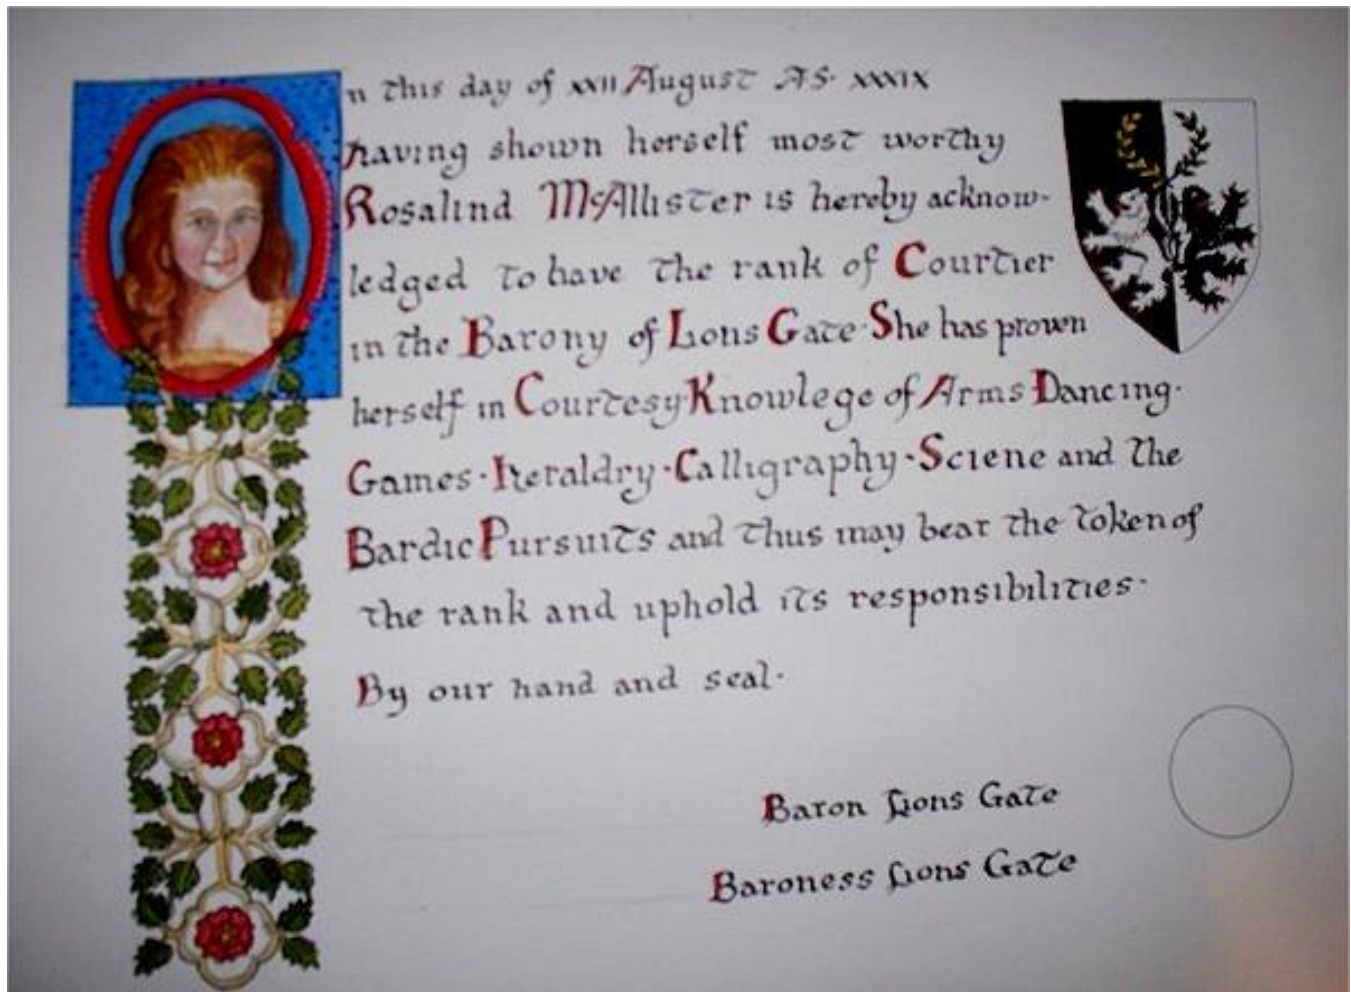 On this day of xxii August AS. xxxix
having shown herself most worthy
Rosalind McAllister is hereby acknow-
ledged to have the rank of Courtier
in the Barony of Lions Gate·She has proven
herself in Courtesy·Knowlege of Arms Dancing·
Games·Heraldry·Calligraphy·Sciene and the
Bardic Pursuits and thus may bear the token of
the rank and uphold its responsibilities·
By our hand and seal·
Baron Lions Gate
Baroness Lions Gate